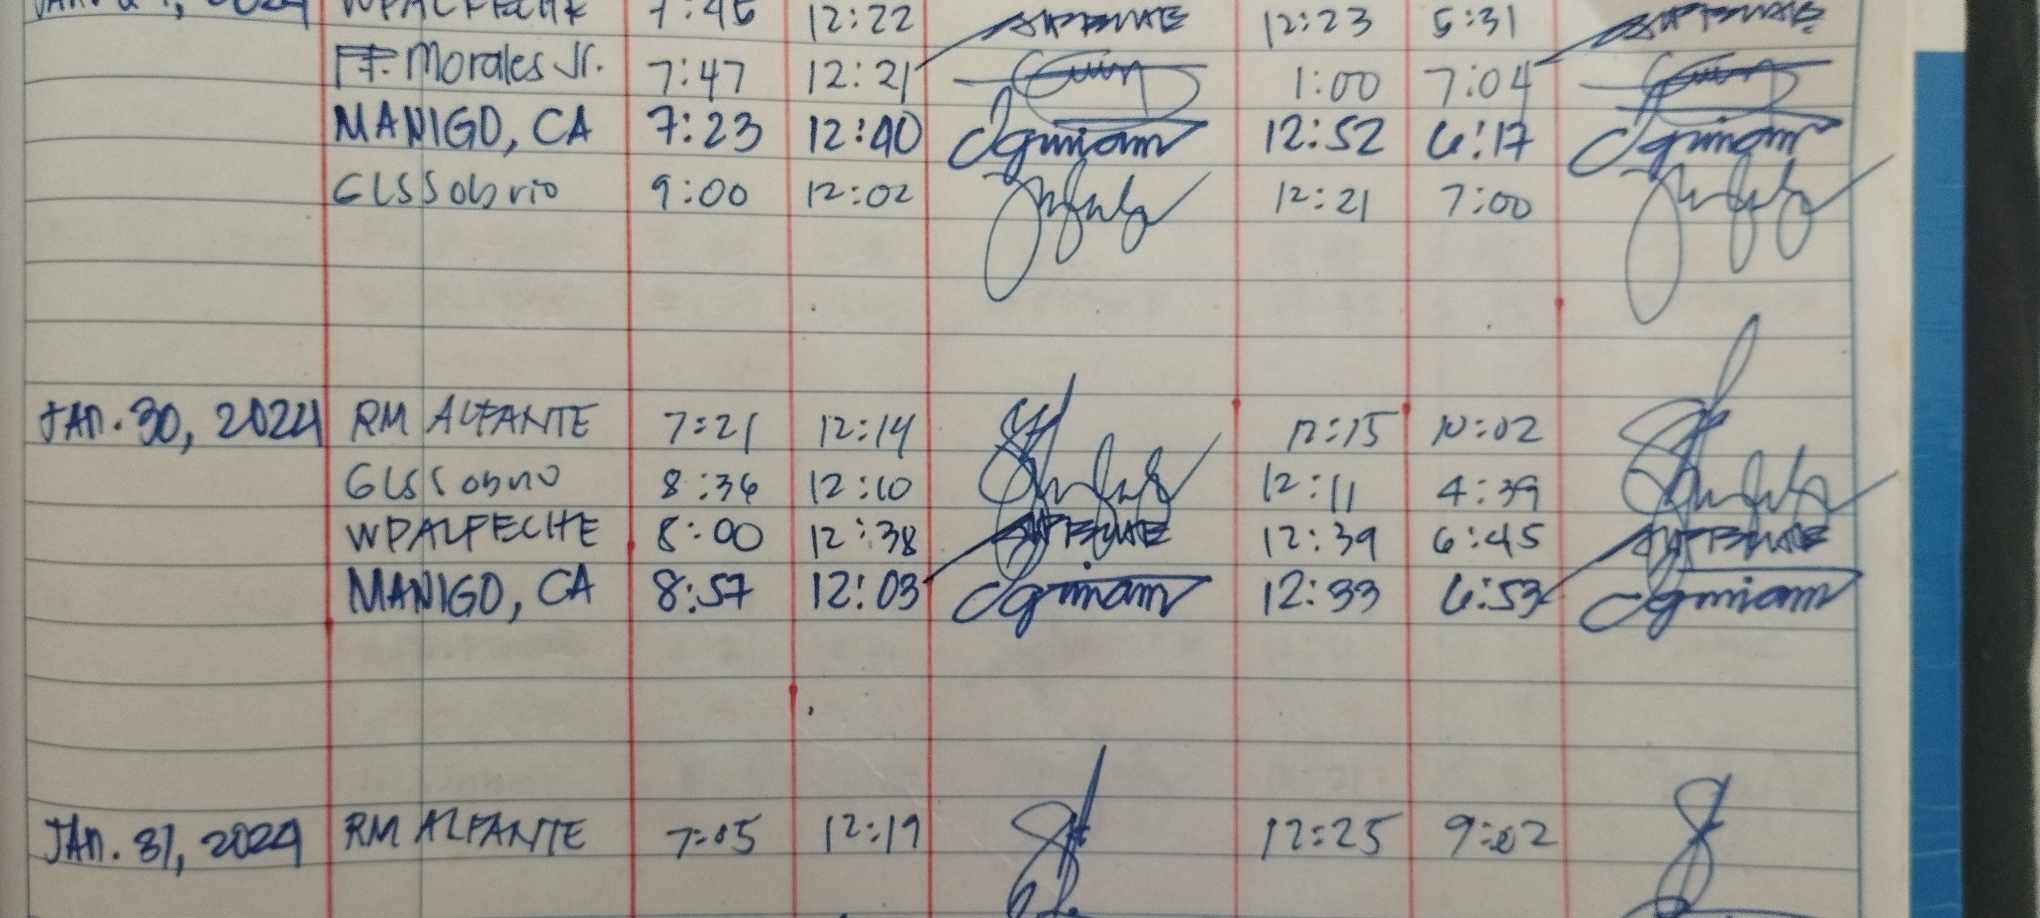 WPALFECHE 7:45 12:22 12:23 5:31
FF. Morales Jr. 7:47 12:21 1:00 7:04
MANIGO, CA 7:23 12:40 12:52 6:17
GLSSobrio 9:00 12:02 12:21 7:00
JAN. 30, 2024 RM ALFANTE 7:21 12:14 12:15 10:02
GLSSobrio 8:36 12:10 12:11 4:39
WPALFECHE 8:00 12:38 12:39 6:45
MANIGO, CA 8:57 12:03 12:33 6:53
JAN. 31, 2024 RM ALFANTE 7:05 12:19 12:25 9:02